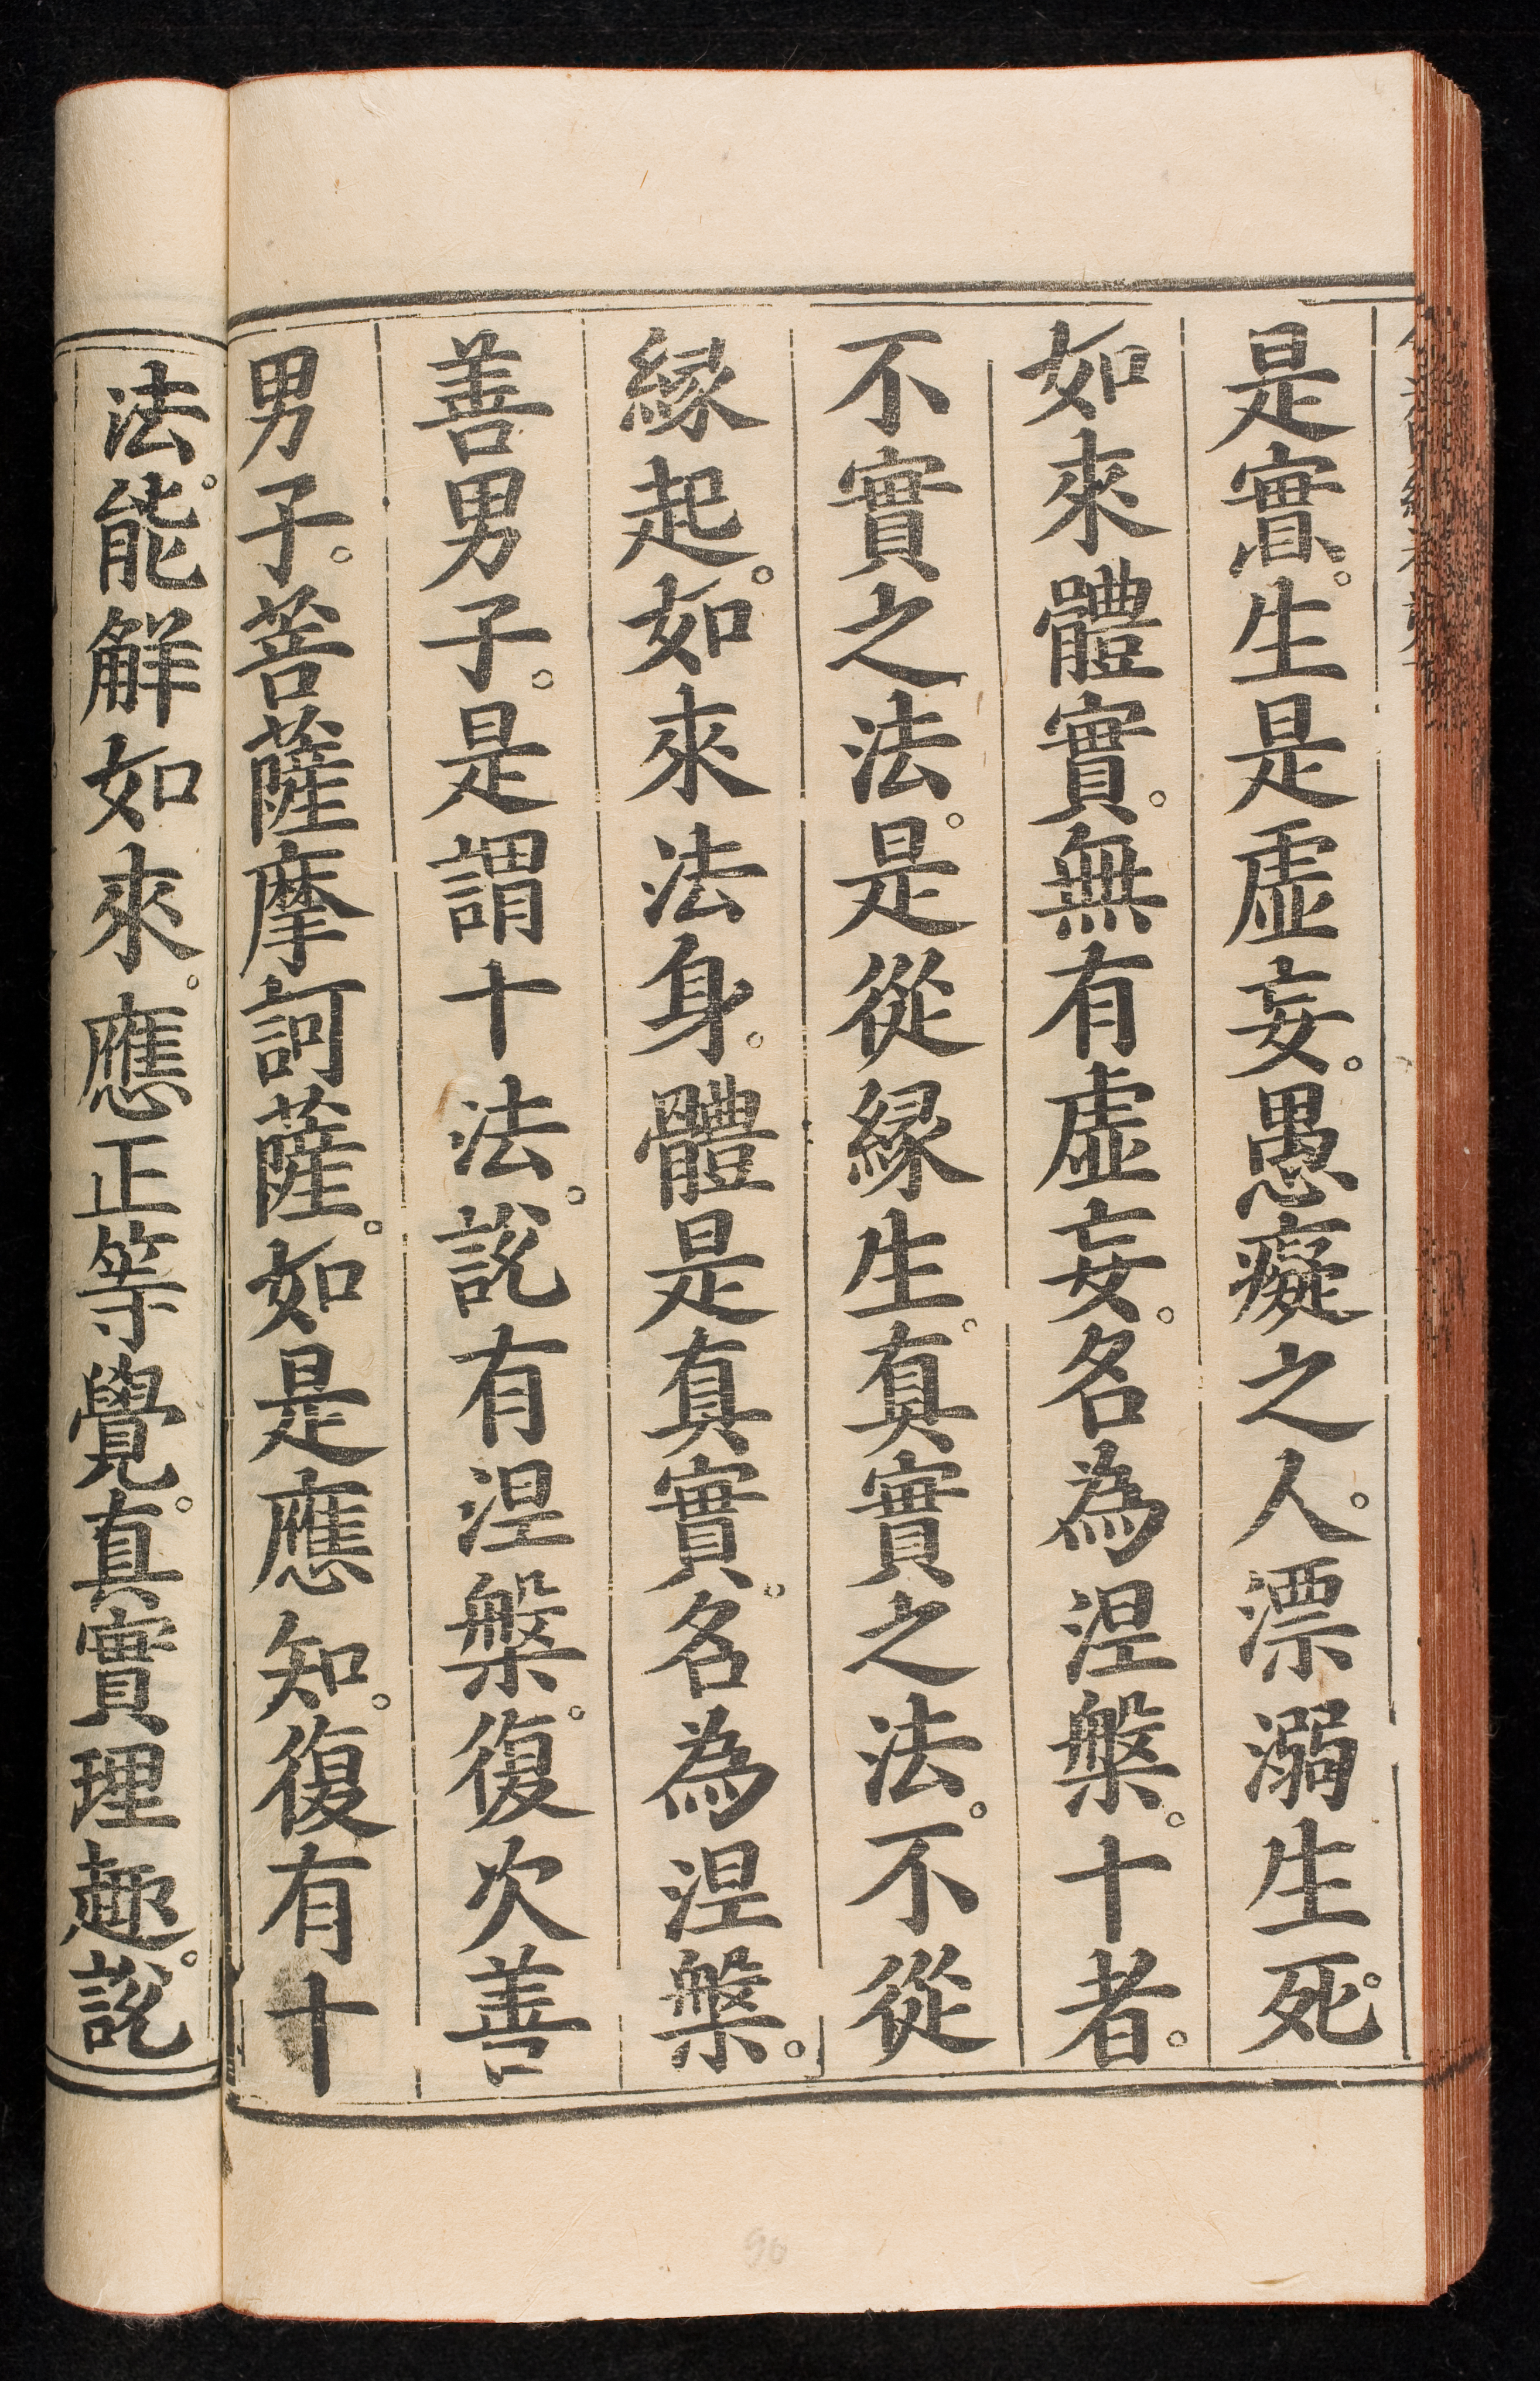 是實。生是虛妄。愚癡之人。漂溺生死。
如來體實。無有虛妄。名為涅槃。十者。
不實之法。是從緣生。真實之法。不從
緣起。如來法身。體是真實。名為涅槃。
善男子。是謂十法。說有涅槃。復次善
男子。菩薩摩訶薩。如是應知。復有十
法。能解如來。應正等覺。真實理趣。說